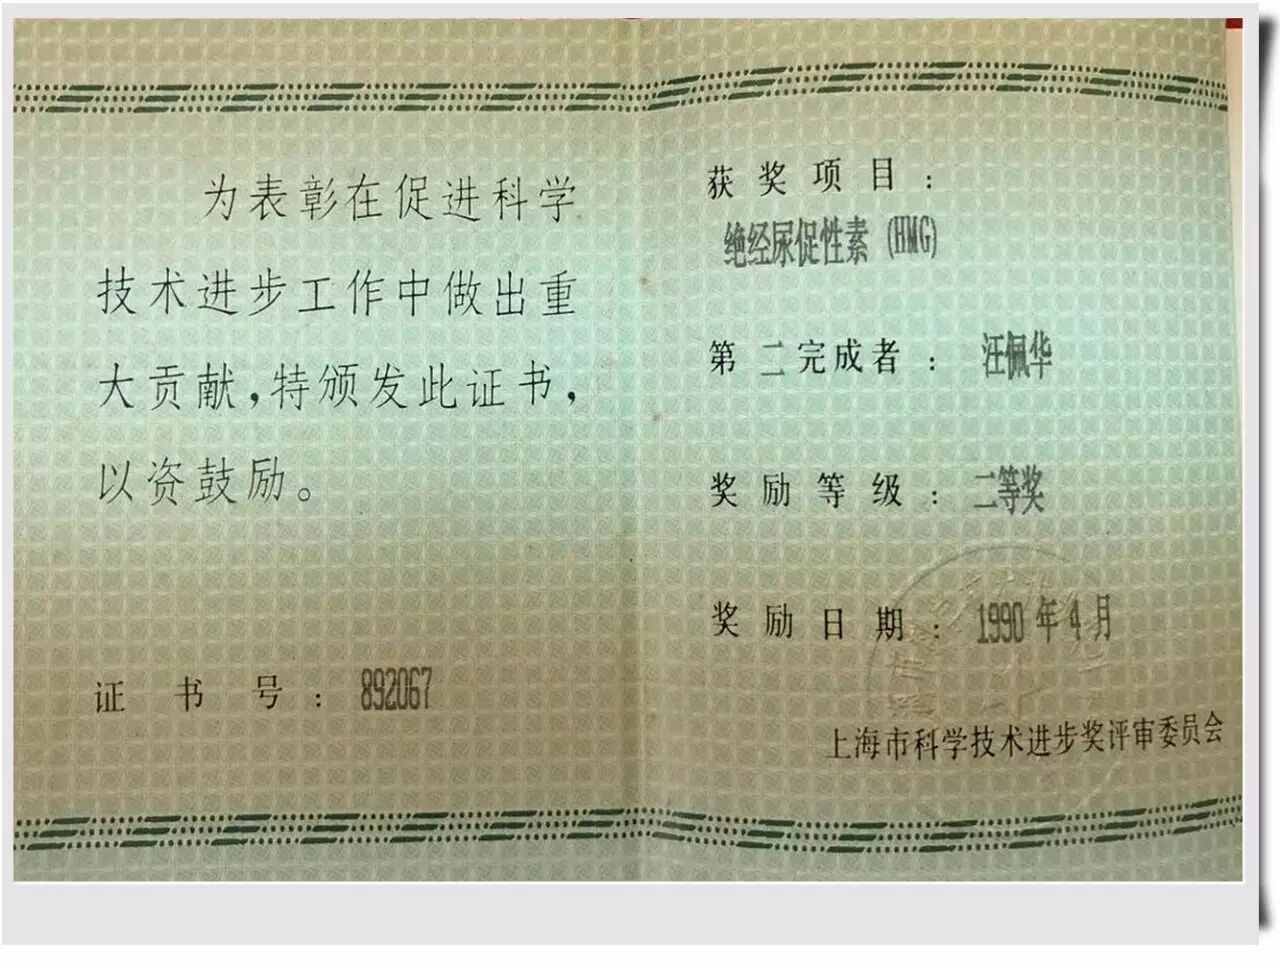 为表彰在促进科学
技术进步工作中做出重
大贡献,特颁发此证书,
以资鼓励。
证书号:892067
获奖项目:
绝经尿促性素(HMG)
第二完成者:汪佩华
奖励等级:二等奖
奖励日期:1990年4月
上海市科学技术进步奖评审委员会